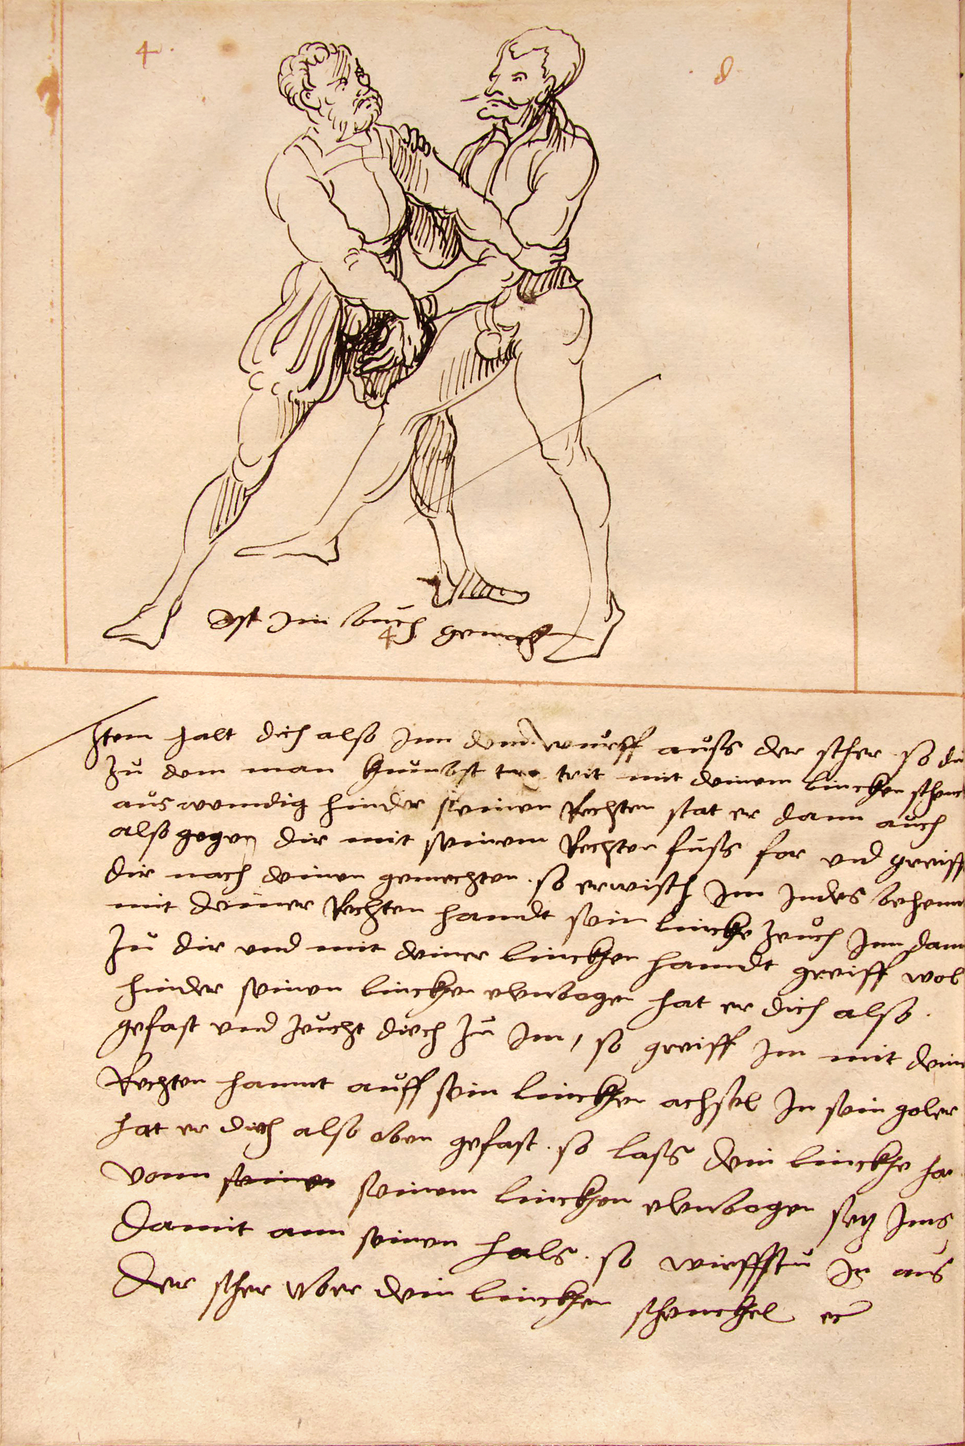 4
8
Ist Im buch gemacht
4
Item halt dich also Inn dem wurff auss der scher so du
Zu dem man kumbst trit mit deinem linckhen schenc
auswendig hinder seinen Rechten stat er dann auch
also gegen dir mit seinem Rechten fuss for und greifft
dir nach deinen gemechten so erwisch Im Indes behenn
mit deiner Rechten handt sein linckhe zeuch Inn dam
Zu dir und mit deiner linckhen handt greiff wol
hinder seinen linckhen elnbogen hat er dich also
gefast und zeucht dich zu Im / so greiff Im mit dein
Rechten hannt auff sein linckhen achsel In sein goler
hat er dich also oben gefast so lass dein linckhe ha
vonn seinen seinem linckhen elnbogen setz Ims
damit ann seinen hals so wirffstu In aus
der scher uber dein linckhen schenckel ec